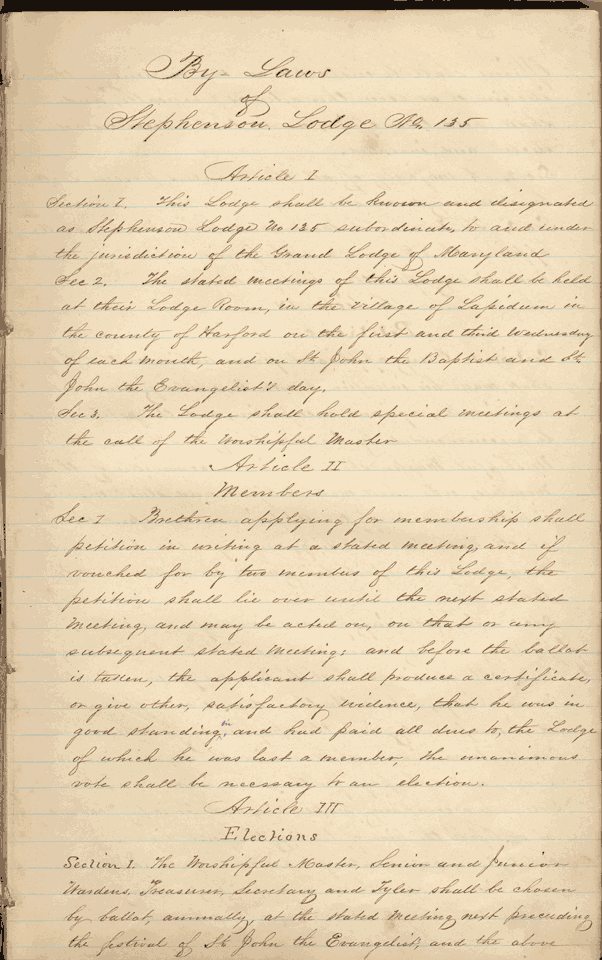 By-Laws
of
Stephenson Lodge No. 135
Article I
Section I. This Lodge shall be known and designated
as Stephenson Lodge No 135 subordinate, to and under
the jurisdiction of the Grand Lodge of Maryland
Sec 2. The stated meetings of this Lodge shall be held
at their Lodge Room, in the village of Lapidum in
the county of Harford on the first and third Wednesday
of each month, and on St John the Baptist and St.
John the Evangelist's day.
Sec 3. The Lodge shall hold special meetings at
the call of the Worshipful Master
Article II
Members
Sec I Brethren applying for membership shall
petition in writing at a stated meeting, and if
vouched for by two members of this Lodge, the
petition shall lie over until the next stated
meeting, and may be acted on, on that or any
subsequent stated meeting; and before the ballot
is taken, the applicant shall produce a certificate,
or give other, satisfactory evidence, that he was in
good standing, in and had paid all dues to, the Lodge
of which he was last a member, the unanimous
vote shall be necessary to an election.
Article III
Elections
Section I. The Worshipful Master, Senior and Junior
Wardens, Treasurer, Secretary and Tyler shall be chosen
by ballot, annually, at the stated meeting next preceding
the festival of St John the Evangelist, and the above